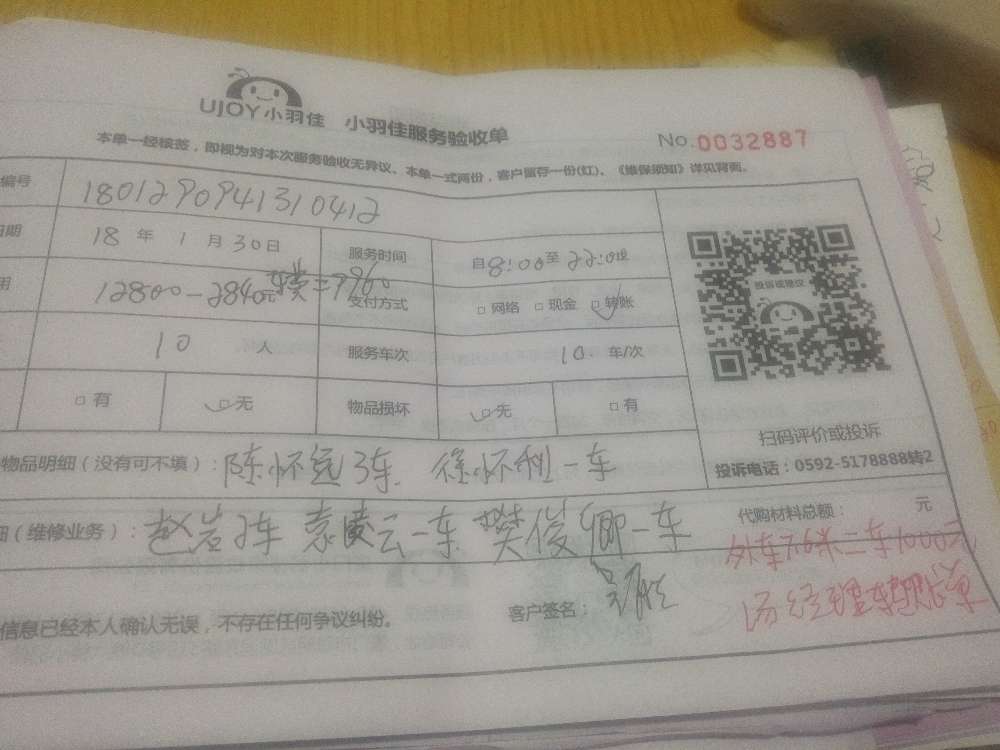 UJOY小羽佳 小羽佳服务验收单
No.0032887
本单一经核签，即视为对本次服务验收无异议、本单一式两份，客户留存一份(红)、《维保须知》详见背面。
编号 1801290941310412
日期 18 年 1 月 30 日 服务时间 自8:00至22:0
用 12800-2840元 =9960 支付方式 □网络 □现金 □转账
投诉或建议
10 人 服务车次 10 车/次
□有 □无 物品损坏 □无 □有
扫码评价或投诉
物品明细（没有可不填）：陈怀远3车 徐怀利一车
投诉电话：0592-5178888转2
（维修业务）：赵岩 车 袁 云一车 樊俊卿一车
代购材料总额： 元
外车 二车1000元
信息已经本人确认无误，不存在任何争议纠纷。 客户签名：
汤经理 单